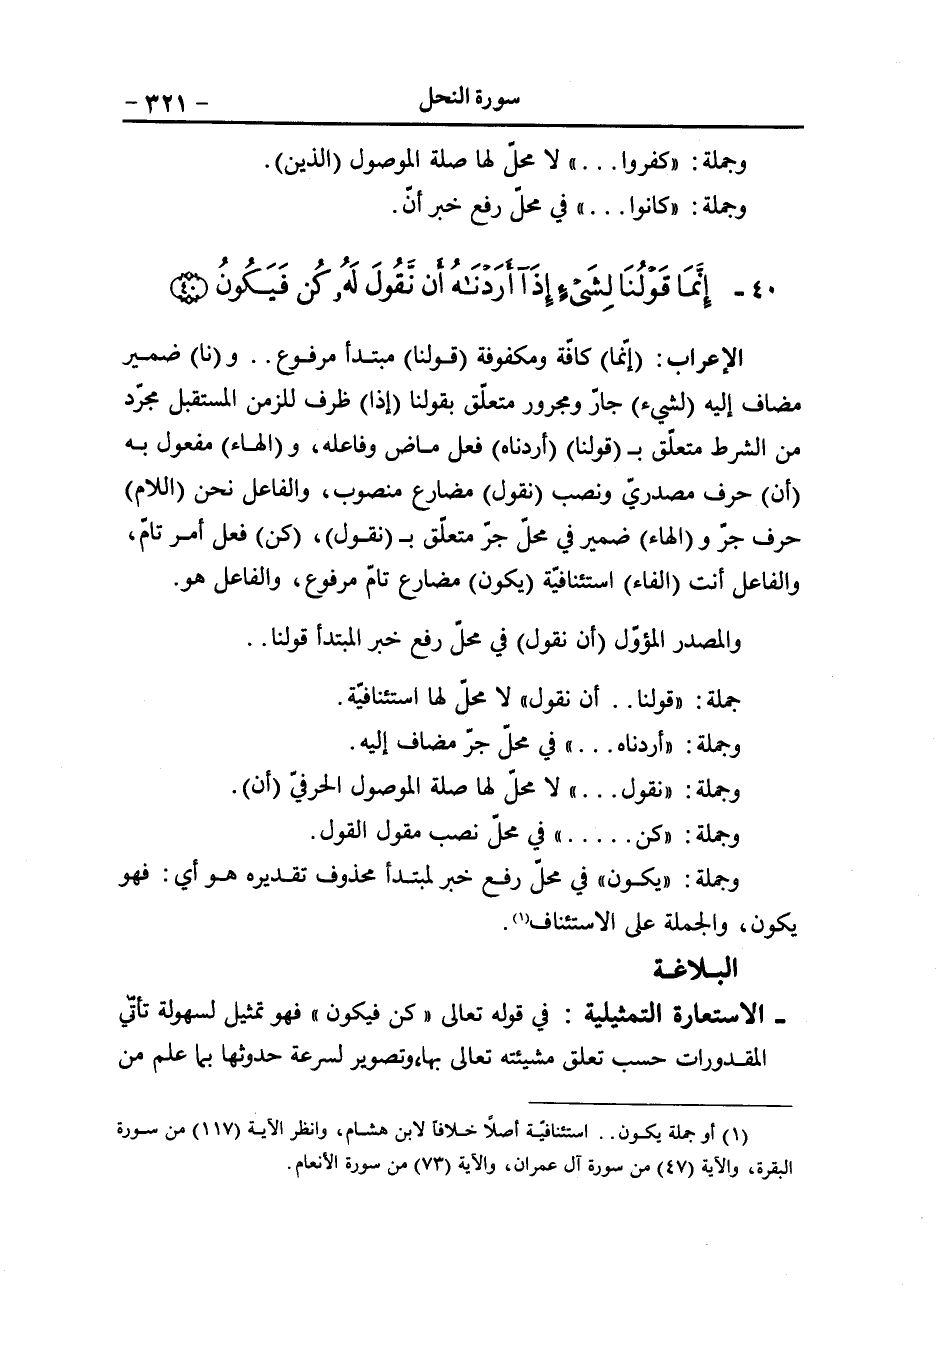 سورة النحل - ٣٢١ -
وجملة: «كفروا...» لا محلّ لها صلة الموصول (الذين).
وجملة: «كانوا...» في محلّ رفع خبر أنّ.
٤٠ - إِنَّمَا قَوْلُنَا لِشَىْءٍ إِذَآ أَرَدْنَٰهُ أَن نَّقُولَ لَهُۥ كُن فَيَكُونُ ﴿٤٠﴾
الإعراب: (إنّما) كافّة ومكفوفة (قولنا) مبتدأ مرفوع.. و(نا) ضمير
مضاف إليه (لشيء) جارّ ومجرور متعلّق بقولنا (إذا) ظرف للزمن المستقبل مجرّد
من الشرط متعلّق بـ (قولنا) (أردناه) فعل ماض وفاعله، و(الهاء) مفعول به
(أن) حرف مصدريّ ونصب (نقول) مضارع منصوب، والفاعل نحن (اللام)
حرف جرّ و(الهاء) ضمير في محلّ جرّ متعلّق بـ (نقول)، (كن) فعل أمر تامّ،
والفاعل أنت (الفاء) استئنافيّة (يكون) مضارع تامّ مرفوع، والفاعل هو.
والمصدر المؤوّل (أن نقول) في محلّ رفع خبر المبتدأ قولنا..
جملة: «قولنا.. أن نقول» لا محلّ لها استئنافيّة.
وجملة: «أردناه...» في محلّ جرّ مضاف إليه.
وجملة: «نقول...» لا محلّ لها صلة الموصول الحرفيّ (أن).
وجملة: «كن.....» في محلّ نصب مقول القول.
وجملة: «يكون» في محلّ رفع خبر لمبتدأ محذوف تقديره هو أي: فهو
يكون، والجملة على الاستئناف(١).
البلاغة
- الاستعارة التمثيلية : في قوله تعالى «كن فيكون» فهو تمثيل لسهولة تأتّي
المقدورات حسب تعلق مشيئته تعالى بها،وتصوير لسرعة حدوثها بما علم من
(١) أو جملة يكون.. استئنافيّة أصلًا خلافًا لابن هشام، وانظر الآية (١١٧) من سورة
البقرة، والآية (٤٧) من سورة آل عمران، والآية (٧٣) من سورة الأنعام.